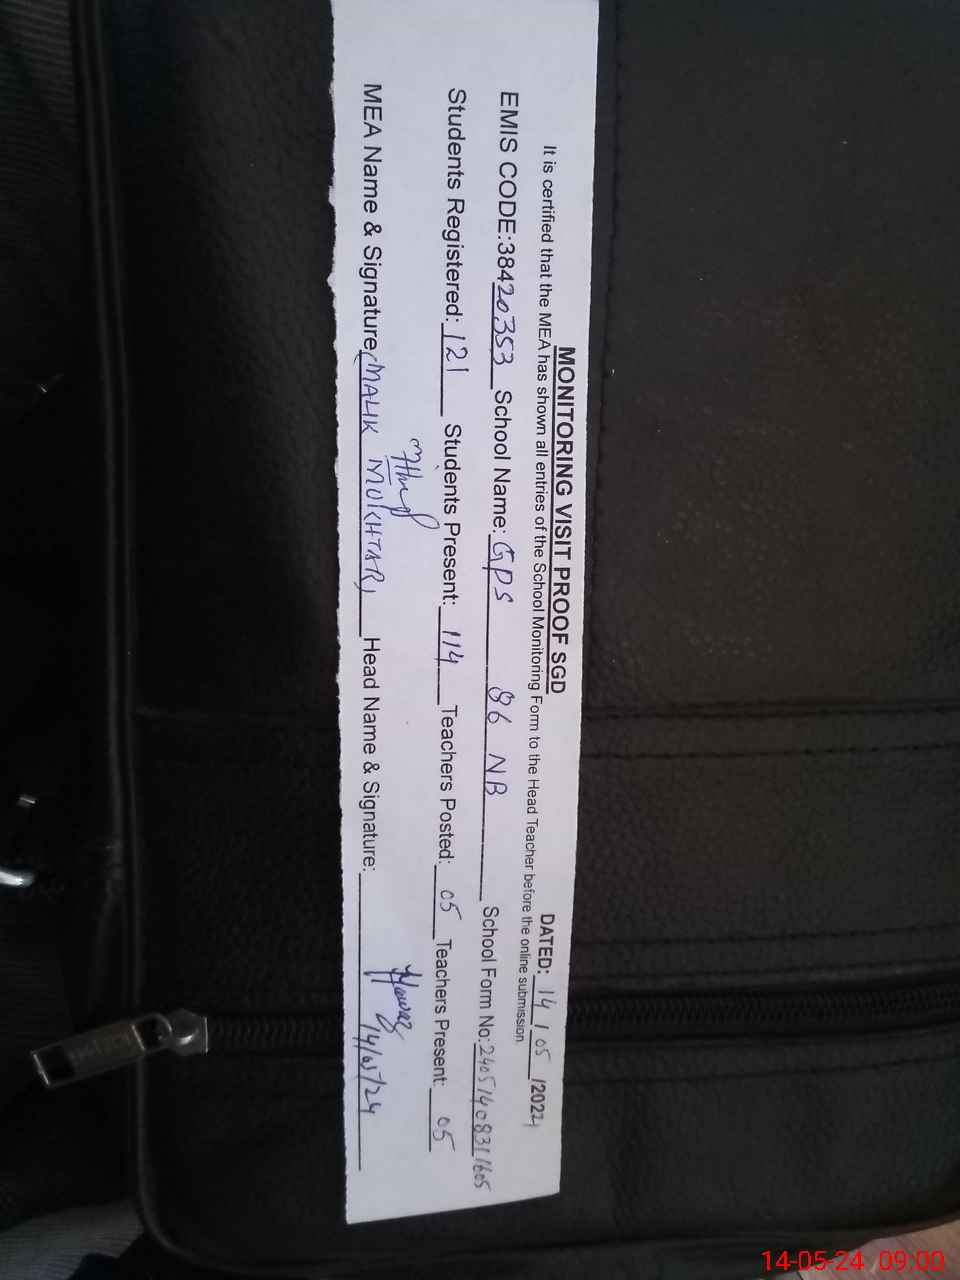 MONITORING VISIT PROOF SGD DATED: 14/05/2024
It is certified that the MEA has shown all entries of the School Monitoring Form to the Head Teacher before the online submission
EMIS CODE:38420353 School Name: GPS 86 NB School Form No:24051408311605
Students Registered: 121 Students Present: 114 Teachers Posted: 05 Teachers Present: 05
MEA Name & Signature MALIK MUKHTAR, Head Name & Signature: 14/05/24
14-05-24 09:00